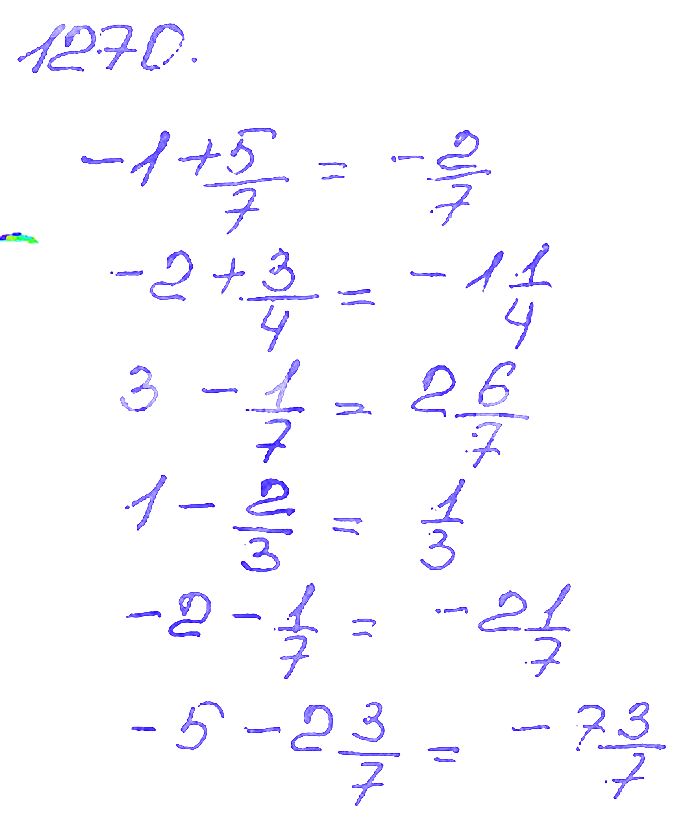 1270.
-1 + 5/7 = -2/7
-2 + 3/4 = -1 1/4
3 - 1/7 = 2 6/7
1 - 2/3 = 1/3
-2 - 1/7 = -2 1/7
-5 - 2 3/7 = -7 3/7